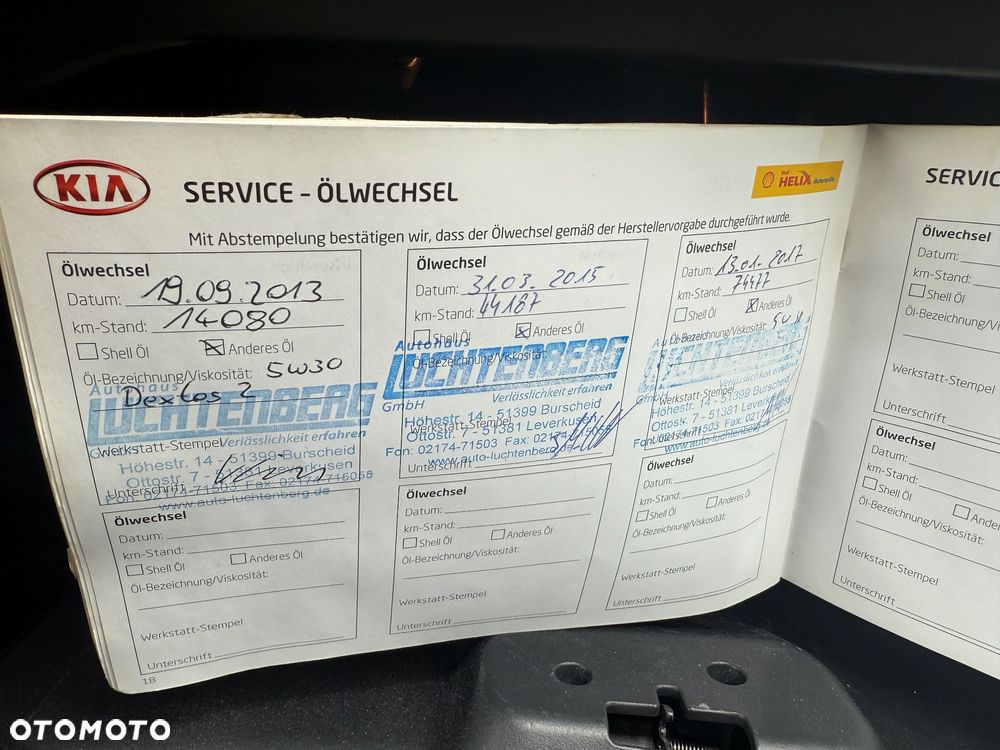 KIA
SERVICE – ÖLWECHSEL
Shell
HELIX Motorenöle
Mit Abstempelung bestätigen wir, dass der Ölwechsel gemäß der Herstellervorgabe durchgeführt wurde.
Ölwechsel
Datum: 19.09.2013
km-Stand: 14080
Shell Öl Anderes Öl
Öl-Bezeichnung/Viskosität: 5W30
Dexlos 2
Autohaus
LUCHTENBERG
Verlässlichkeit erfahren
Werkstatt-Stempel
Höhestr. 14 - 51399 Burscheid
Ottostr. 7 - 51381 Leverkusen
Unterschrift
Fon: 02174-71503 Fax: 02174-715055
www.auto-luchtenberg.de
Ölwechsel
Datum: 31.03.2015
km-Stand: 44187
Shell Öl Anderes Öl
Öl-Bezeichnung/Viskosität:
Autohaus
LUCHTENBERG
GmbH Verlässlichkeit erfahren
Höhestr. 14 - 51399 Burscheid
Werkstatt-Stempel
Ottostr. 7 - 51381 Leverkusen
Fon: 02174-71503 Fax: 02174
www.auto-luchtenberg
Unterschrift
Ölwechsel
Datum: 13.01.2017
km-Stand: 74477
Shell Öl Anderes Öl
Öl-Bezeichnung/Viskosität:
LUCHTENBERG
Verlässlichkeit erfahren
Werkstatt-Stempel
Höhestr. 14 - 51399 Burscheid
Ottostr. 7 - 51381 Leverkusen
Fon: 02174-71503 Fax:
Unterschrift
www.auto-luchtenberg.de
Ölwechsel
Datum:
km-Stand:
Shell Öl Anderes Öl
Öl-Bezeichnung/Viskosität:
Werkstatt-Stempel
Unterschrift
Ölwechsel
Datum:
km-Stand:
Shell Öl Anderes Öl
Öl-Bezeichnung/Viskosität:
Werkstatt-Stempel
Unterschrift
Ölwechsel
Datum:
km-Stand:
Shell Öl Anderes Öl
Öl-Bezeichnung/Viskosität:
Werkstatt-Stempel
Unterschrift
18
SERVIC
Ölwechsel
Datum:
km-Stand:
Shell Öl
Öl-Bezeichnung/Viskos
Werkstatt-Stempel
Unterschrift
Ölwechsel
Datum:
km-Stand:
Shell Öl Anderes
Öl-Bezeichnung/Viskosität:
Werkstatt-Stempel
Unterschrift
OTOMOTO